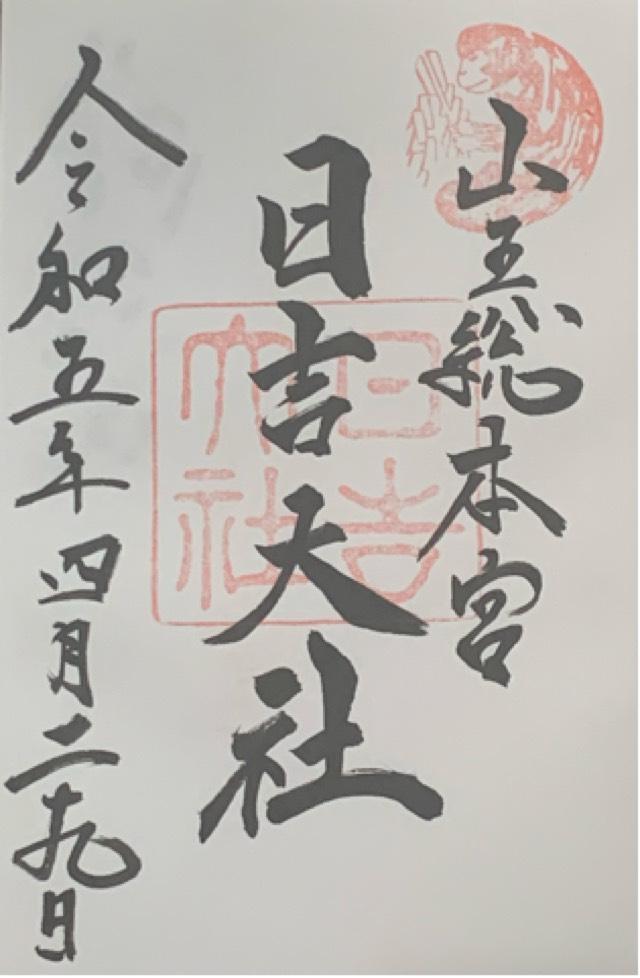 山王総本宮
日吉大社
令和五年四月二十九日
日吉
大社